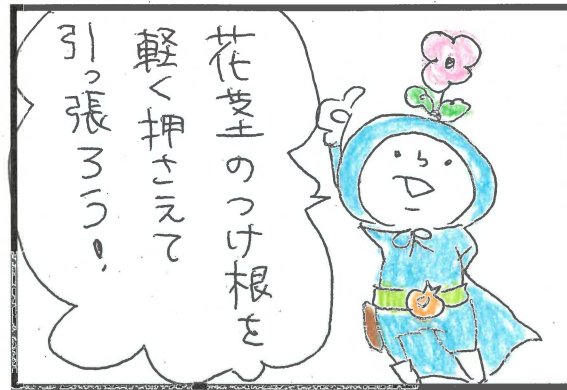 花茎のつけ根を
軽く押さえて
引っ張ろう!